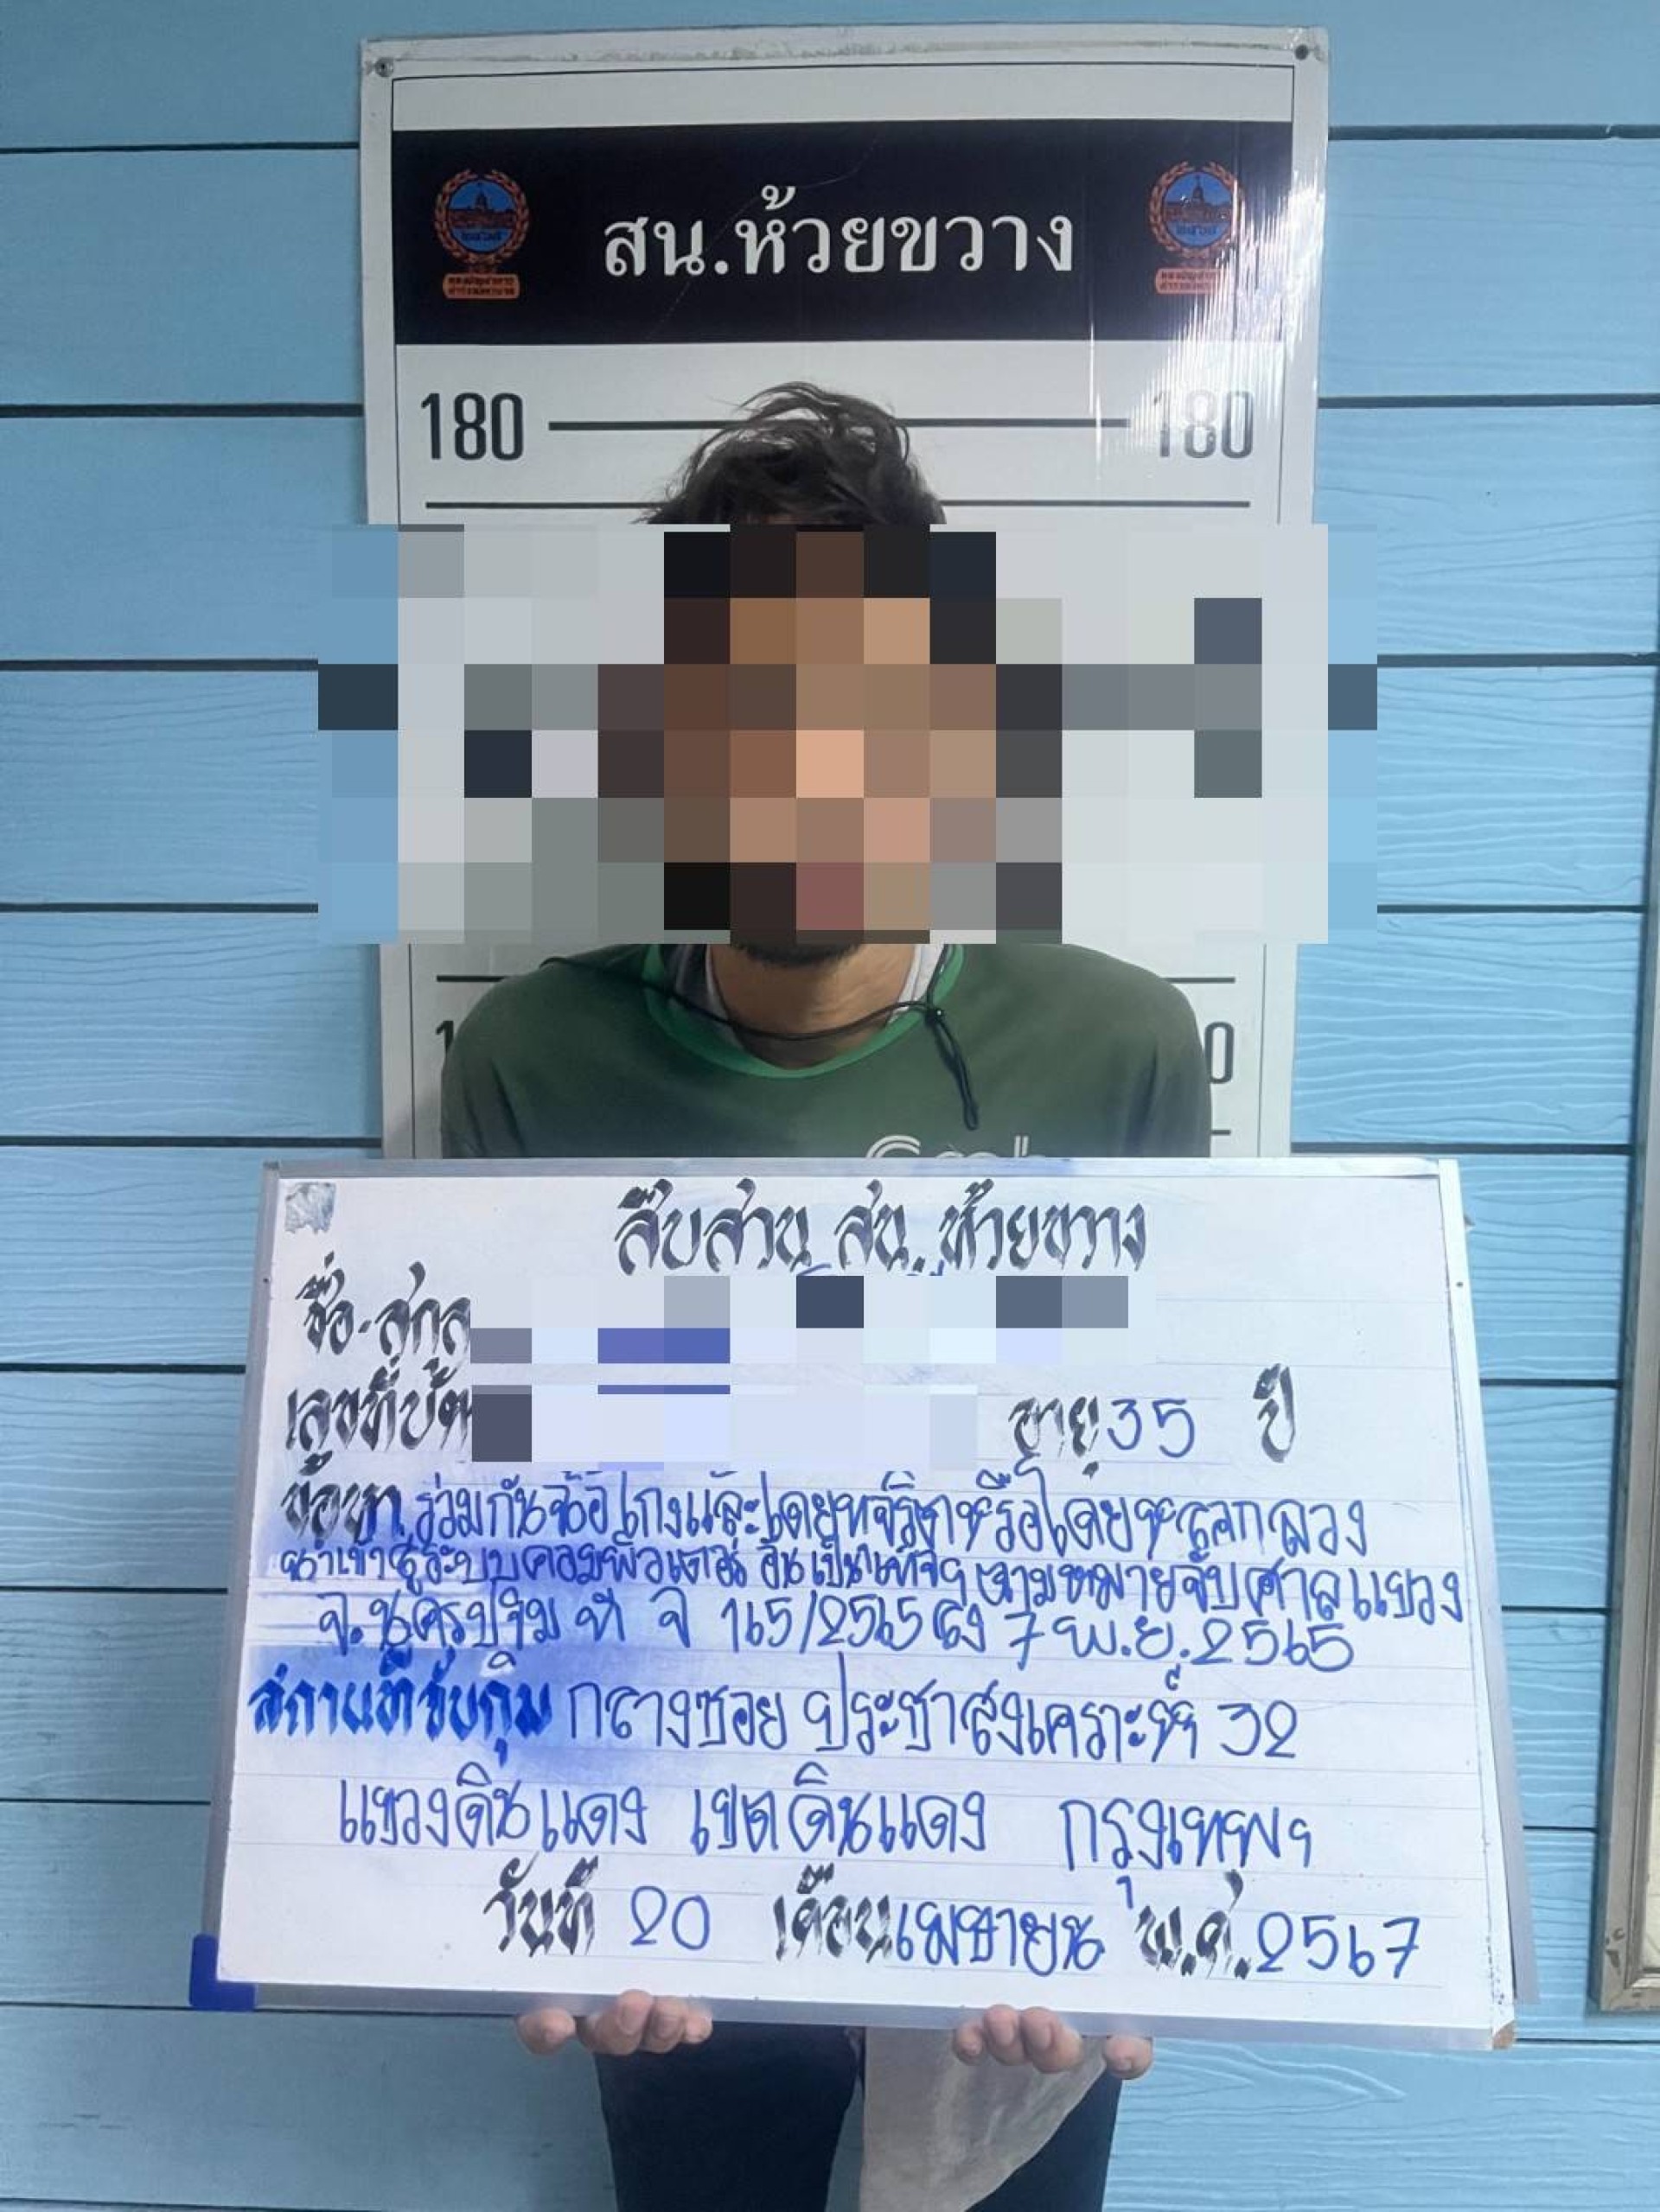 สน.ห้วยขวาง
180 180
สืบสวน สน.ห้วยขวาง
ชื่อ-สกุล
เลขที่บัตร อายุ 35 ปี
ข้อหา ร่วมกันฉ้อโกงและโดยทุจริตหรือโดยหลอกลวง
นำเข้าสู่ระบบคอมพิวเตอร์ อันเป็นเท็จฯ ตามหมายจับศาลแขวง
จ.นครปฐม ที่ จ 165/2565 ลง 7 พ.ย. 2565
สถานที่จับกุม กลางซอย ประชาสงเคราะห์ 32
แขวงดินแดง เขตดินแดง กรุงเทพฯ
วันที่ 20 เดือนเมษายน พ.ศ. 2567